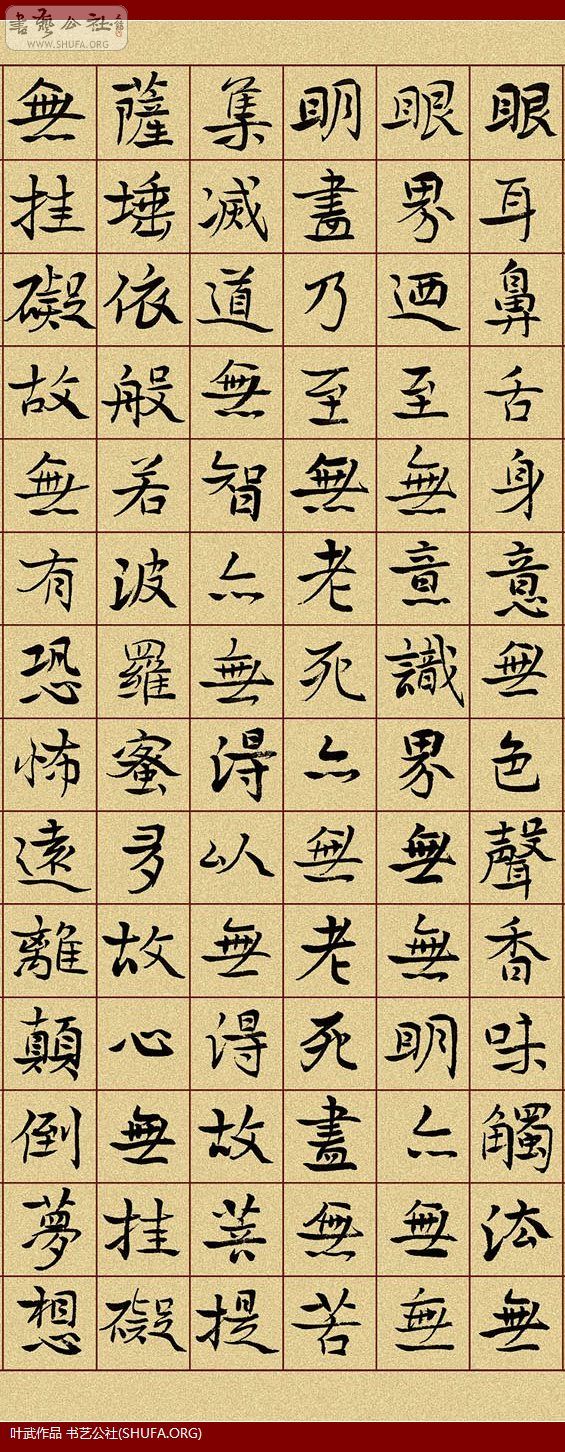 書藝公社
WWW.SHUFA.ORG
眼耳鼻舌身意無色聲香味觸法無
眼界迺至無意識界無無明亦無無
明盡乃至無老死亦無老死盡無苦
集滅道無智亦無得以無得故菩提
薩埵依般若波羅蜜多故心無挂礙
無挂礙故無有恐怖遠離顛倒夢想
叶武作品 书艺公社(SHUFA.ORG)